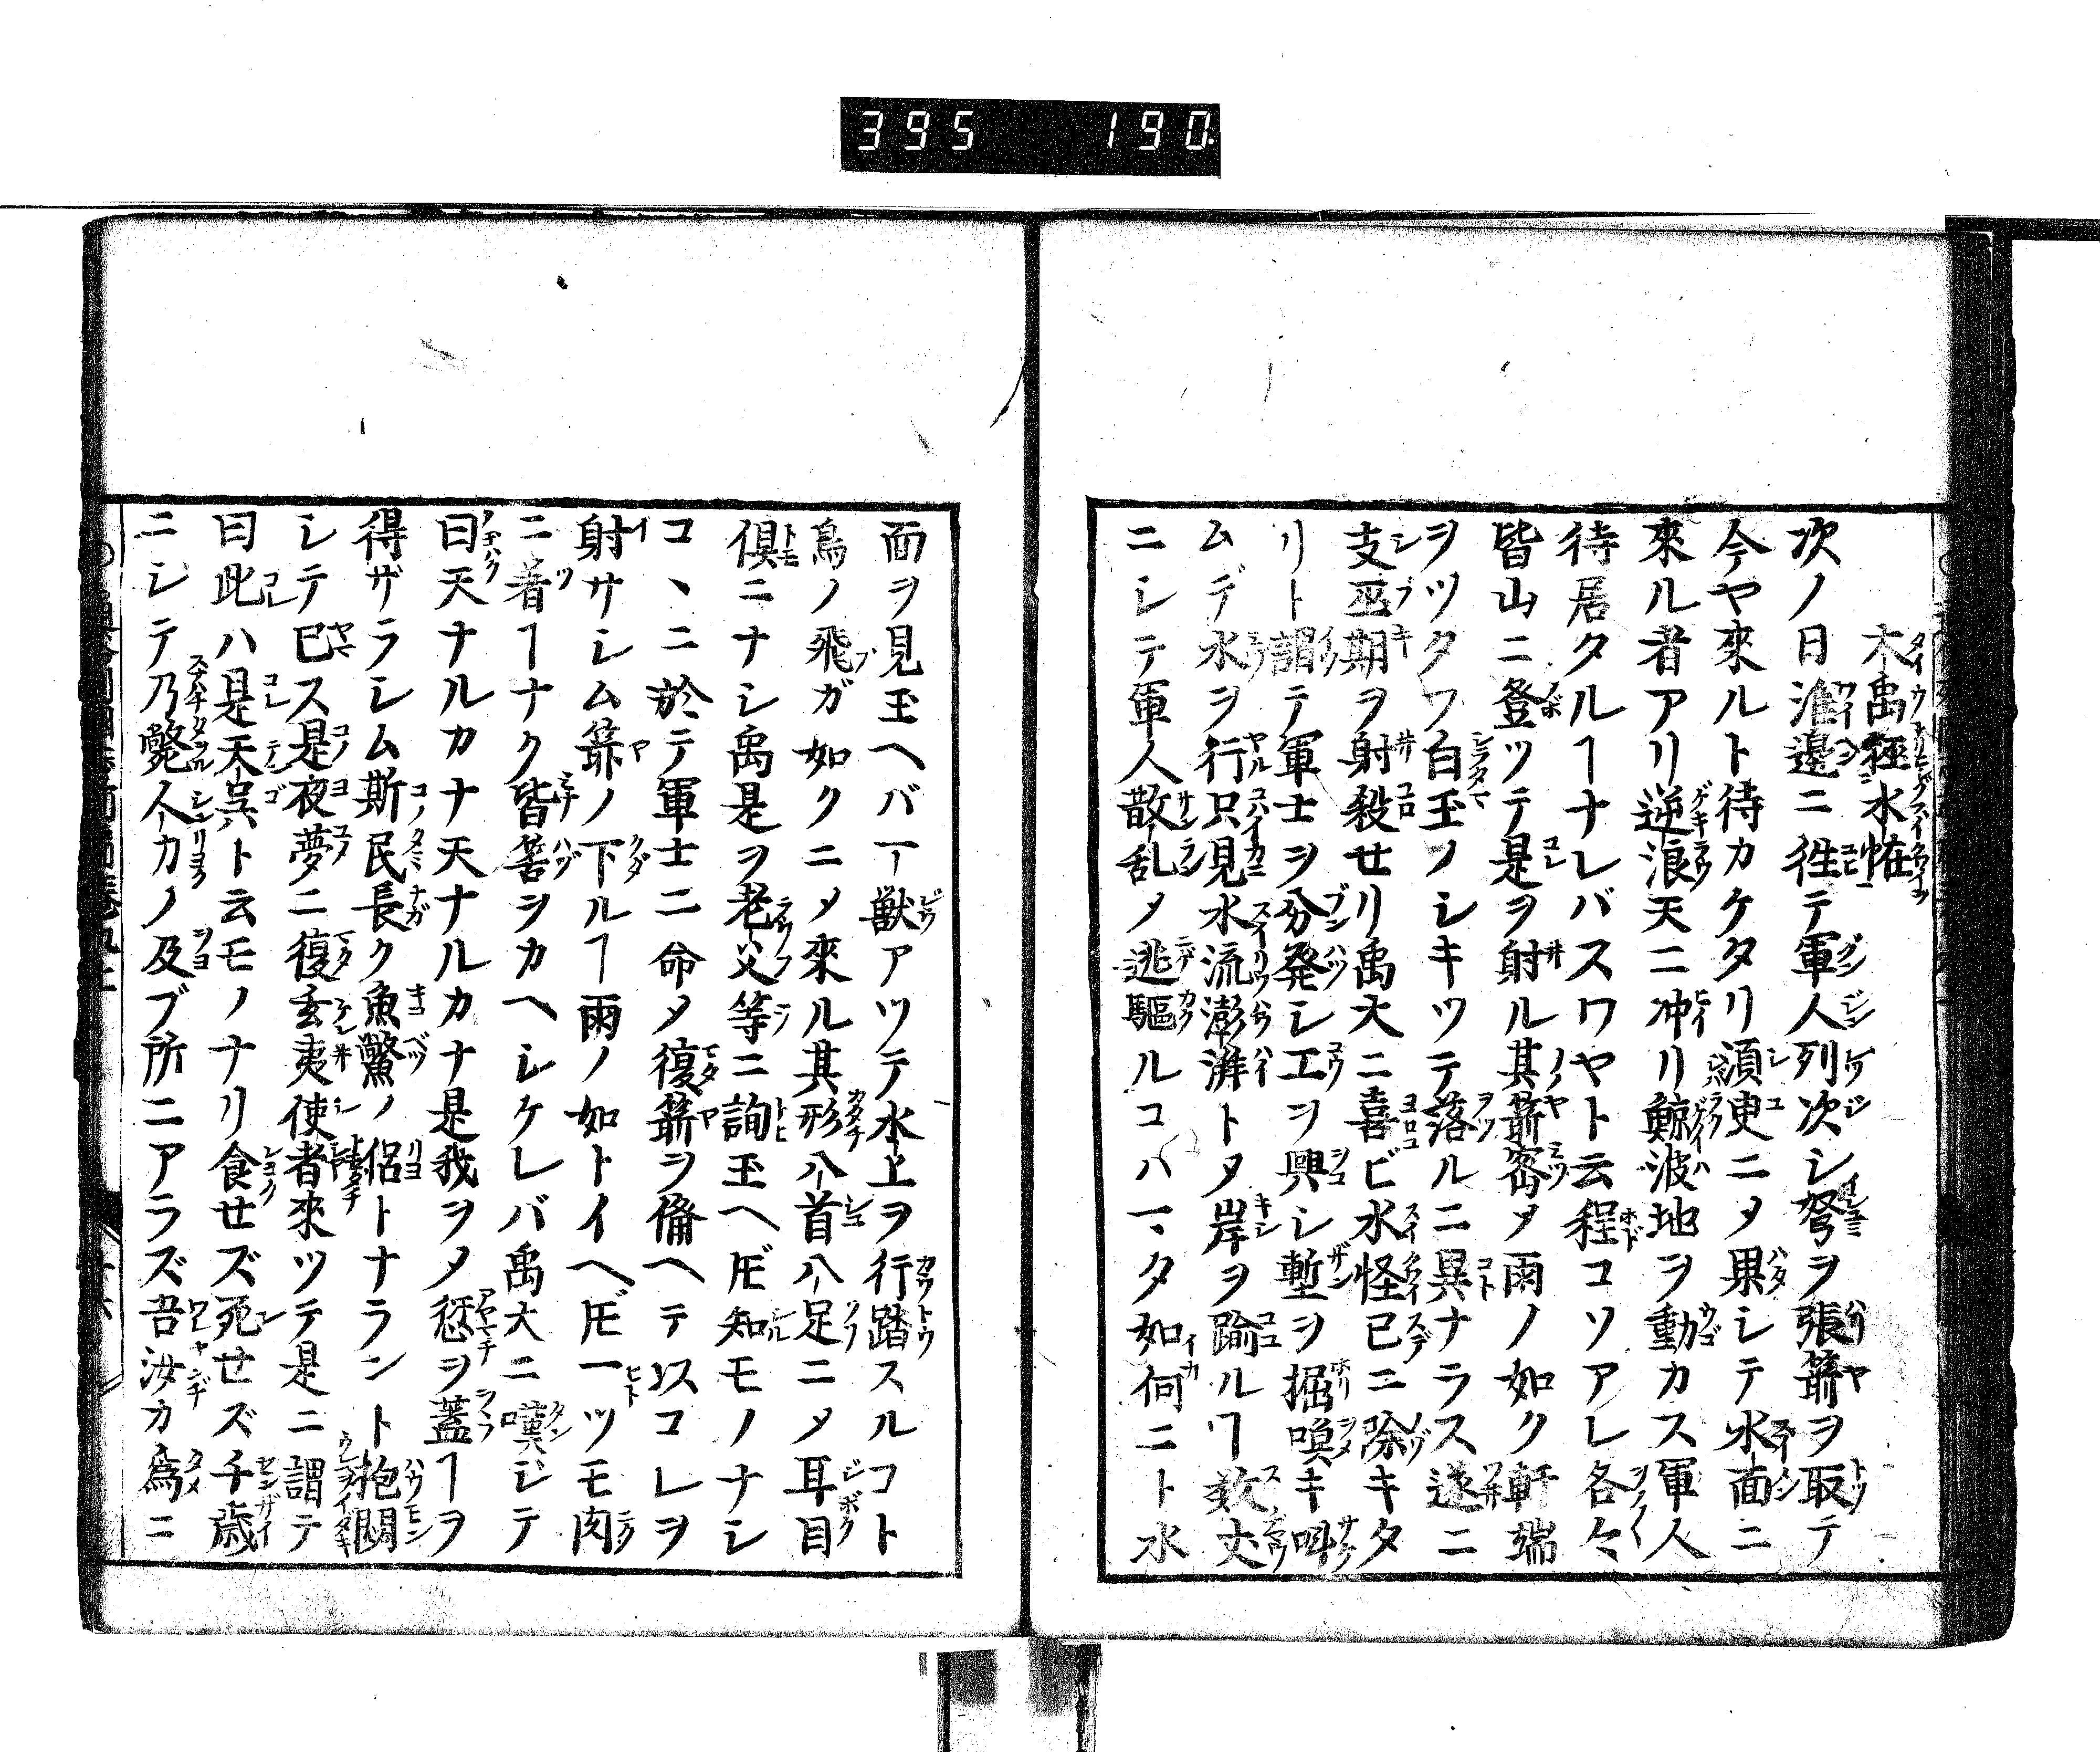 395 190
大禹極水怪
次ノ日淮邊ニ徃テ軍人列次シ弩ヲ張箭ヲ取テ
今ヤ來ルト待カケタリ須臾ニメ果シテ水面ニ
來ル者アリ逆浪天ニ冲リ鯨波地ヲ動カス軍人
待居タルヿナレバスワヤト云程コソアレ各々
皆山ニ登ツテ是ヲ射ル其箭密メ雨ノ如ク軒端
ヲツタフ白玉ノシキツテ落ルニ異ナラス遂ニ
支巫期ヲ射殺せリ禹大ニ喜ビ水怪已ニ除キタ
リト謂テ軍士ヲ分発シ工ヲ興シ塹ヲ掘喚キ叫
ムデ水ヲ行只見水流澎湃トメ岸ヲ踰ルヿ数丈
ニシテ軍人散乱メ逃驅ルコハ一タ如何ニト水
面ヲ見玉ヘバ一獣アツテ水上ヲ行踏スルコト
鳥ノ飛ガ如クニメ來ル其形八首八足ニメ耳目
倶ニナシ禹是ヲ老父等ニ詢玉ヘ𪜈知モノナシ
コヽニ於テ軍士ニ命メ復箭ヲ俻ヘテ以コレヲ
射サシム箭ノ下ルヿ雨ノ如トイヘ𪜈一ツモ肉
ニ着ヿナク皆筈ヲカヘシケレバ禹大ニ嘆ジテ
曰天ナルカナ天ナルカナ是我ヲメ愆ヲ蓋ヿヲ
得ザラシム斯民長ク魚鱉ノ侶トナラント抱悶
シテ巳ス是夜夢ニ復玄夷使者來ツテ是ニ謂テ
曰此ハ是天呉ト云モノナリ食せズ死せズ千歳
ニシテ乃斃人カノ及ブ所ニアラズ吾汝カ為ニ